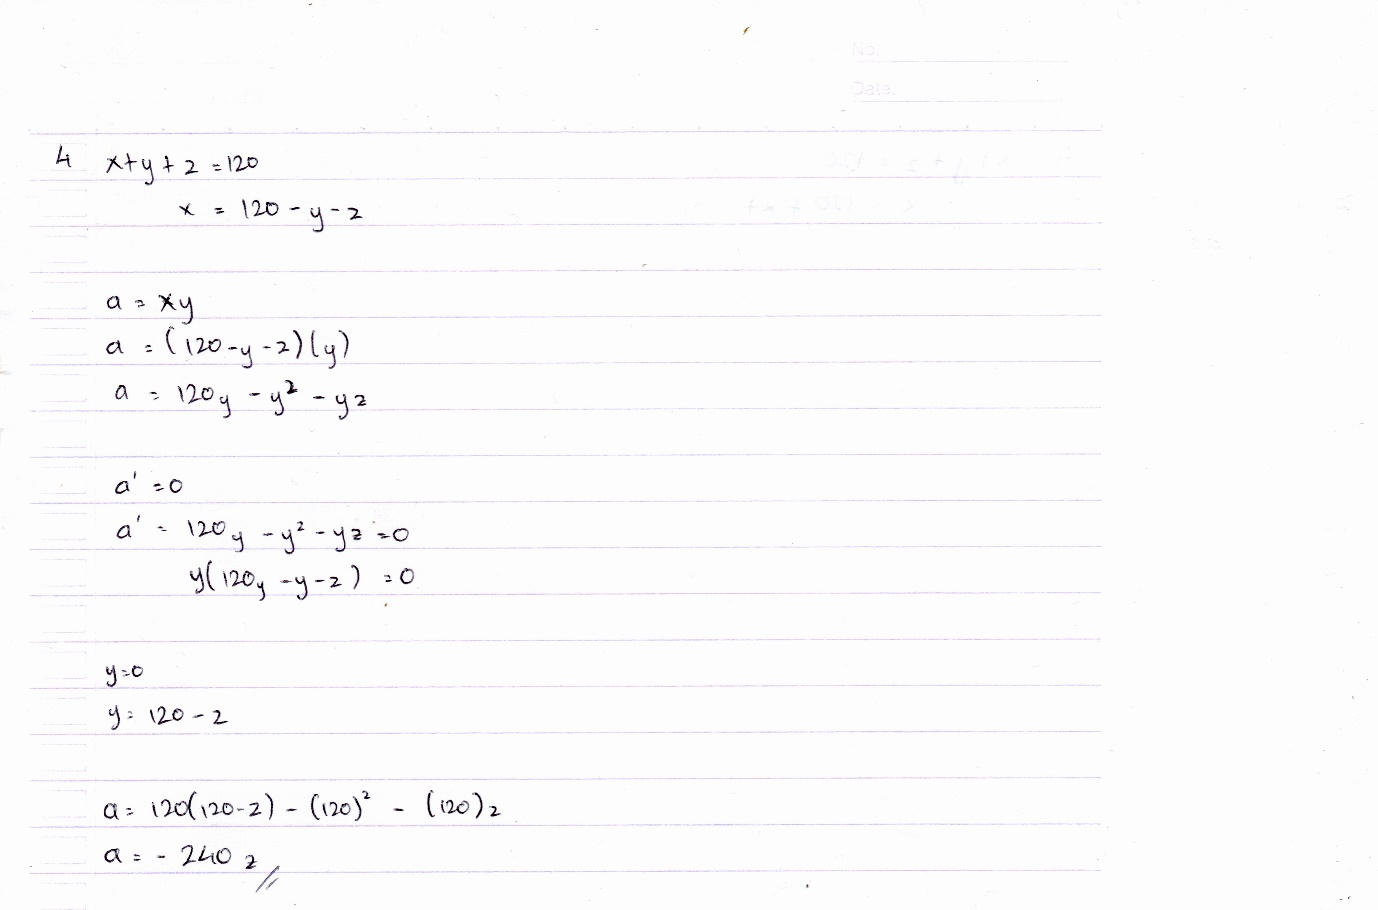 No.
Date.
4 x+y+z = 120
x = 120 - y - z
a = xy
a = (120-y-z)(y)
a = 120y - y² - yz
a' = 0
a' = 120y - y² - yz = 0
y(120y - y - z) = 0
y=0
y = 120 - z
a = 120(120-z) - (120)² - (120)z
a = - 240 z //